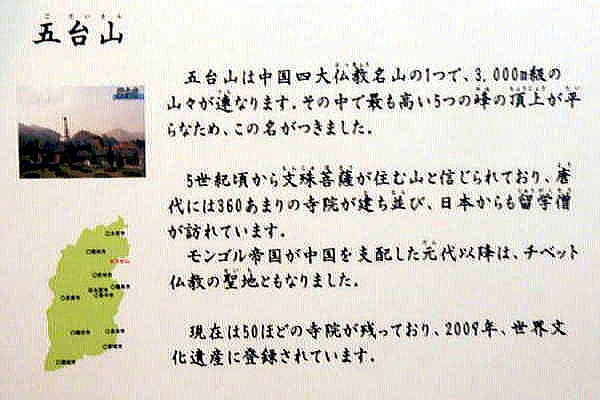 五台山
五台山は中国四大仏教名山の1つで、3,000m級の
山々が連なります。その中で最も高い5つの峰の頂上が平
らなため、この名がつきました。
5世紀頃から文殊菩薩が住む山と信じられており、唐
代には360あまりの寺院が建ち並び、日本からも留学僧
が訪れています。
モンゴル帝国が中国を支配した元代以降は、チベット
仏教の聖地ともなりました。
現在は50ほどの寺院が残っており、2009年、世界文
化遺産に登録されています。